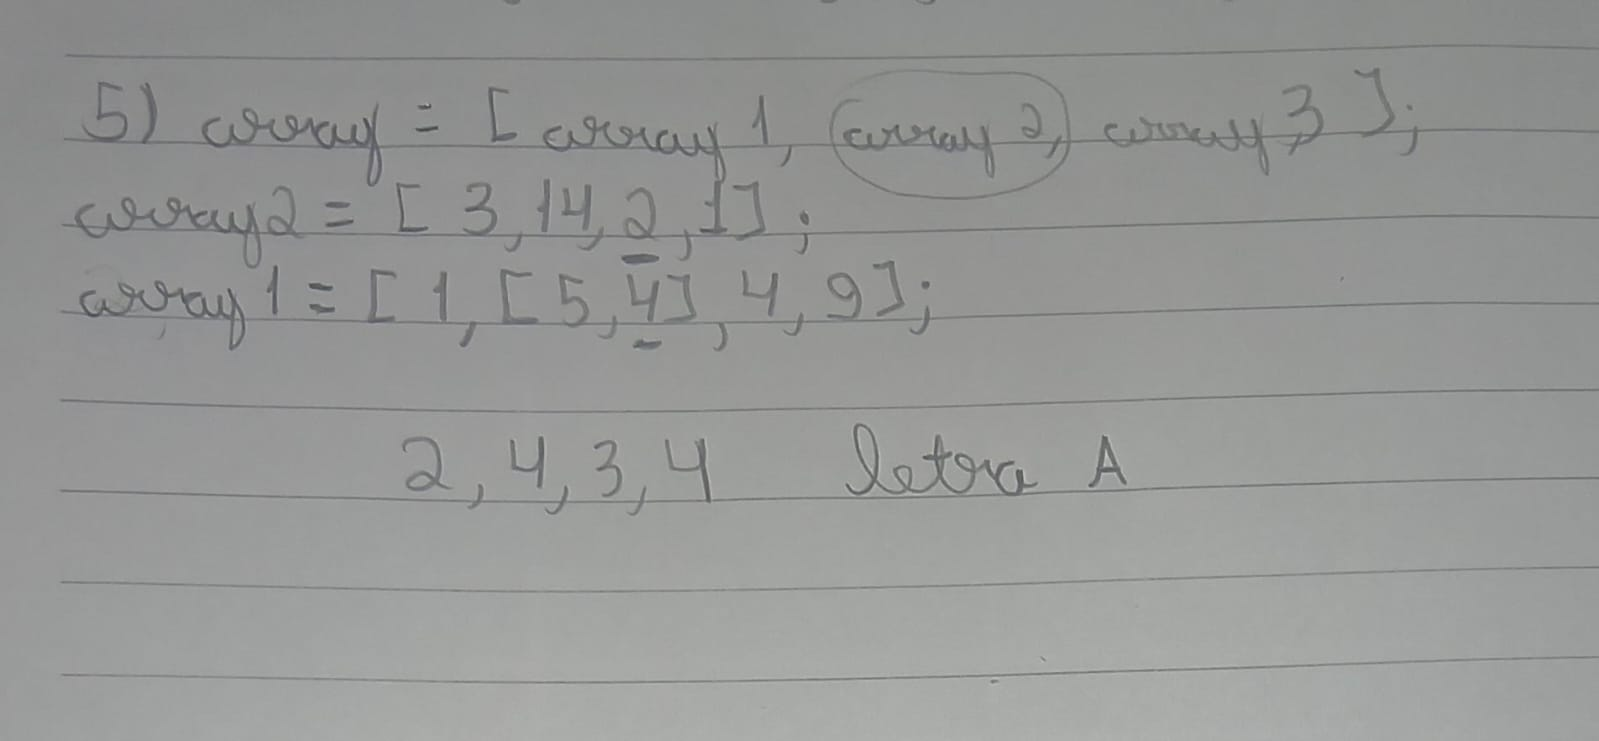 5) array = [ array 1, array 2, array 3 ];
array2 = [ 3, 14, 2, 1];
array 1 = [ 1, [ 5, 4], 4, 9];
2, 4, 3, 4 letra A